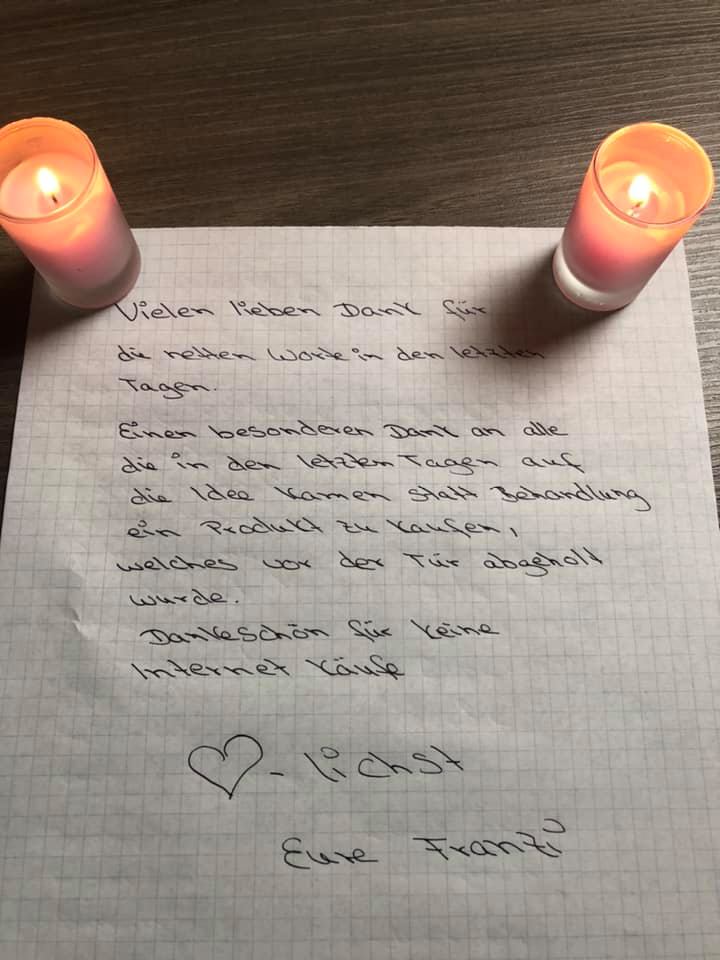 Vielen lieben Dank für
die netten Worte in den letzten
Tagen.
Einen besonderen Dank an alle
die in den letzten Tagen auf
die Idee kamen statt Behandlung
ein Produkt zu kaufen,
welches vor der Tür abgeholt
wurde.
Dankeschön für keine
Internet käufe
♡-lichst
Eure Franzi